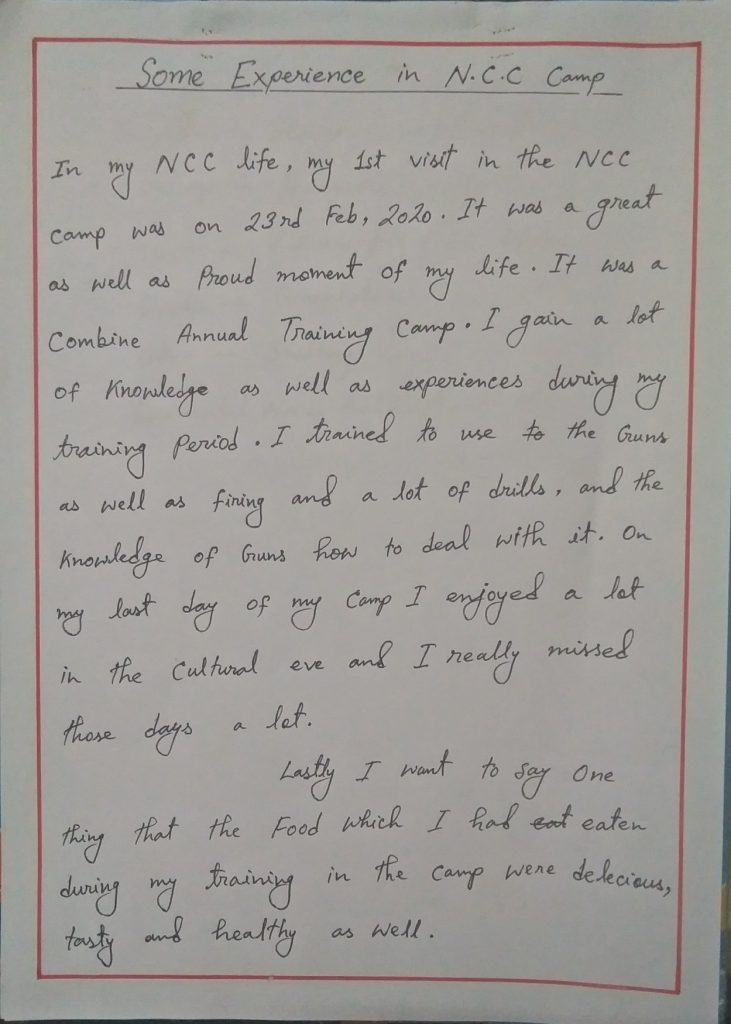 Some Experience in N.C.C Camp
In my NCC life, my 1st visit in the NCC
Camp was on 23rd Feb, 2020. It was a great
as well as Proud moment of my life. It was a
Combine Annual Training Camp. I gain a lot
of Knowledge as well as experiences during my
training Period. I trained to use to the Guns
as well as firing and a lot of drills, and the
Knowledge of Guns how to deal with it. On
my last day of my Camp I enjoyed a lot
in the Cultural eve and I really missed
those days a lot.
Lastly I want to say One
thing that the Food which I had eat eaten
during my training in the Camp were delecious,
tasty and healthy as well.